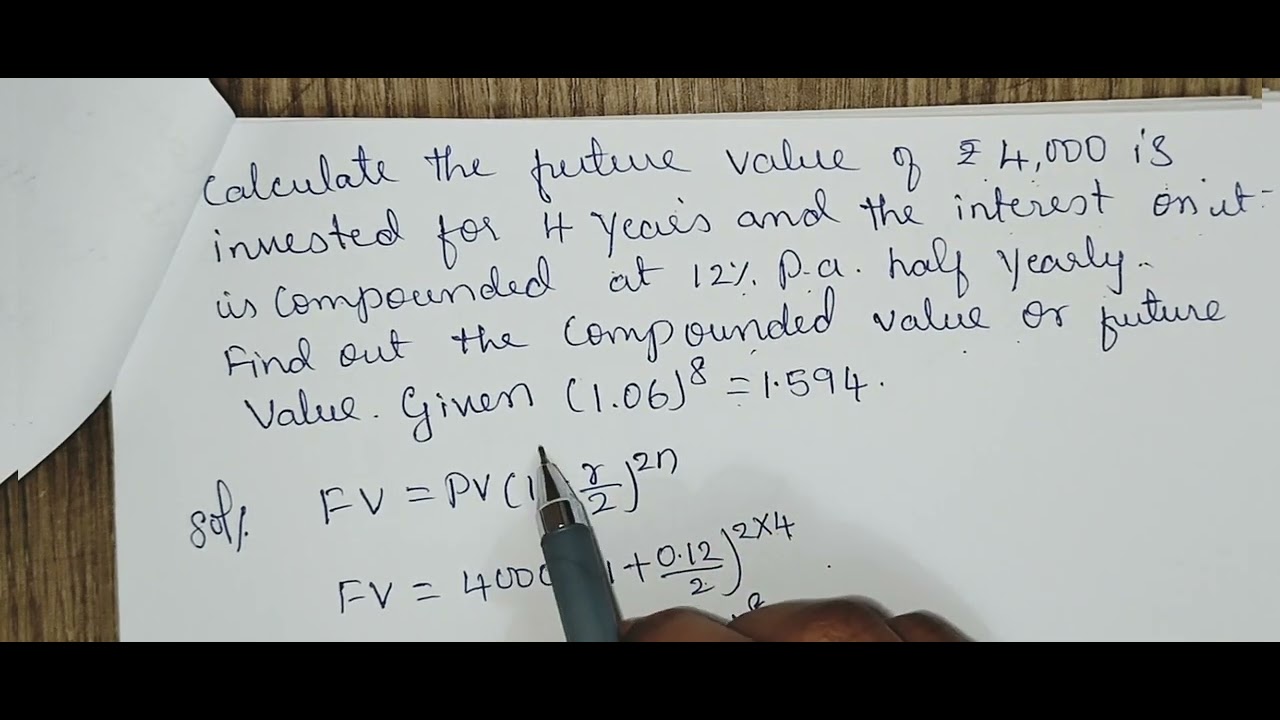 Calculate the future value of ₹ 4,000 is
invested for 4 years and the interest on it
is compounded at 12% p.a. half yearly.
Find out the compounded value or future
value. Given (1.06)^8 = 1.594.
Sol/. FV = PV (1 r/2)^2n
FV = 4000 1 + 0.12/2)^2×4
8